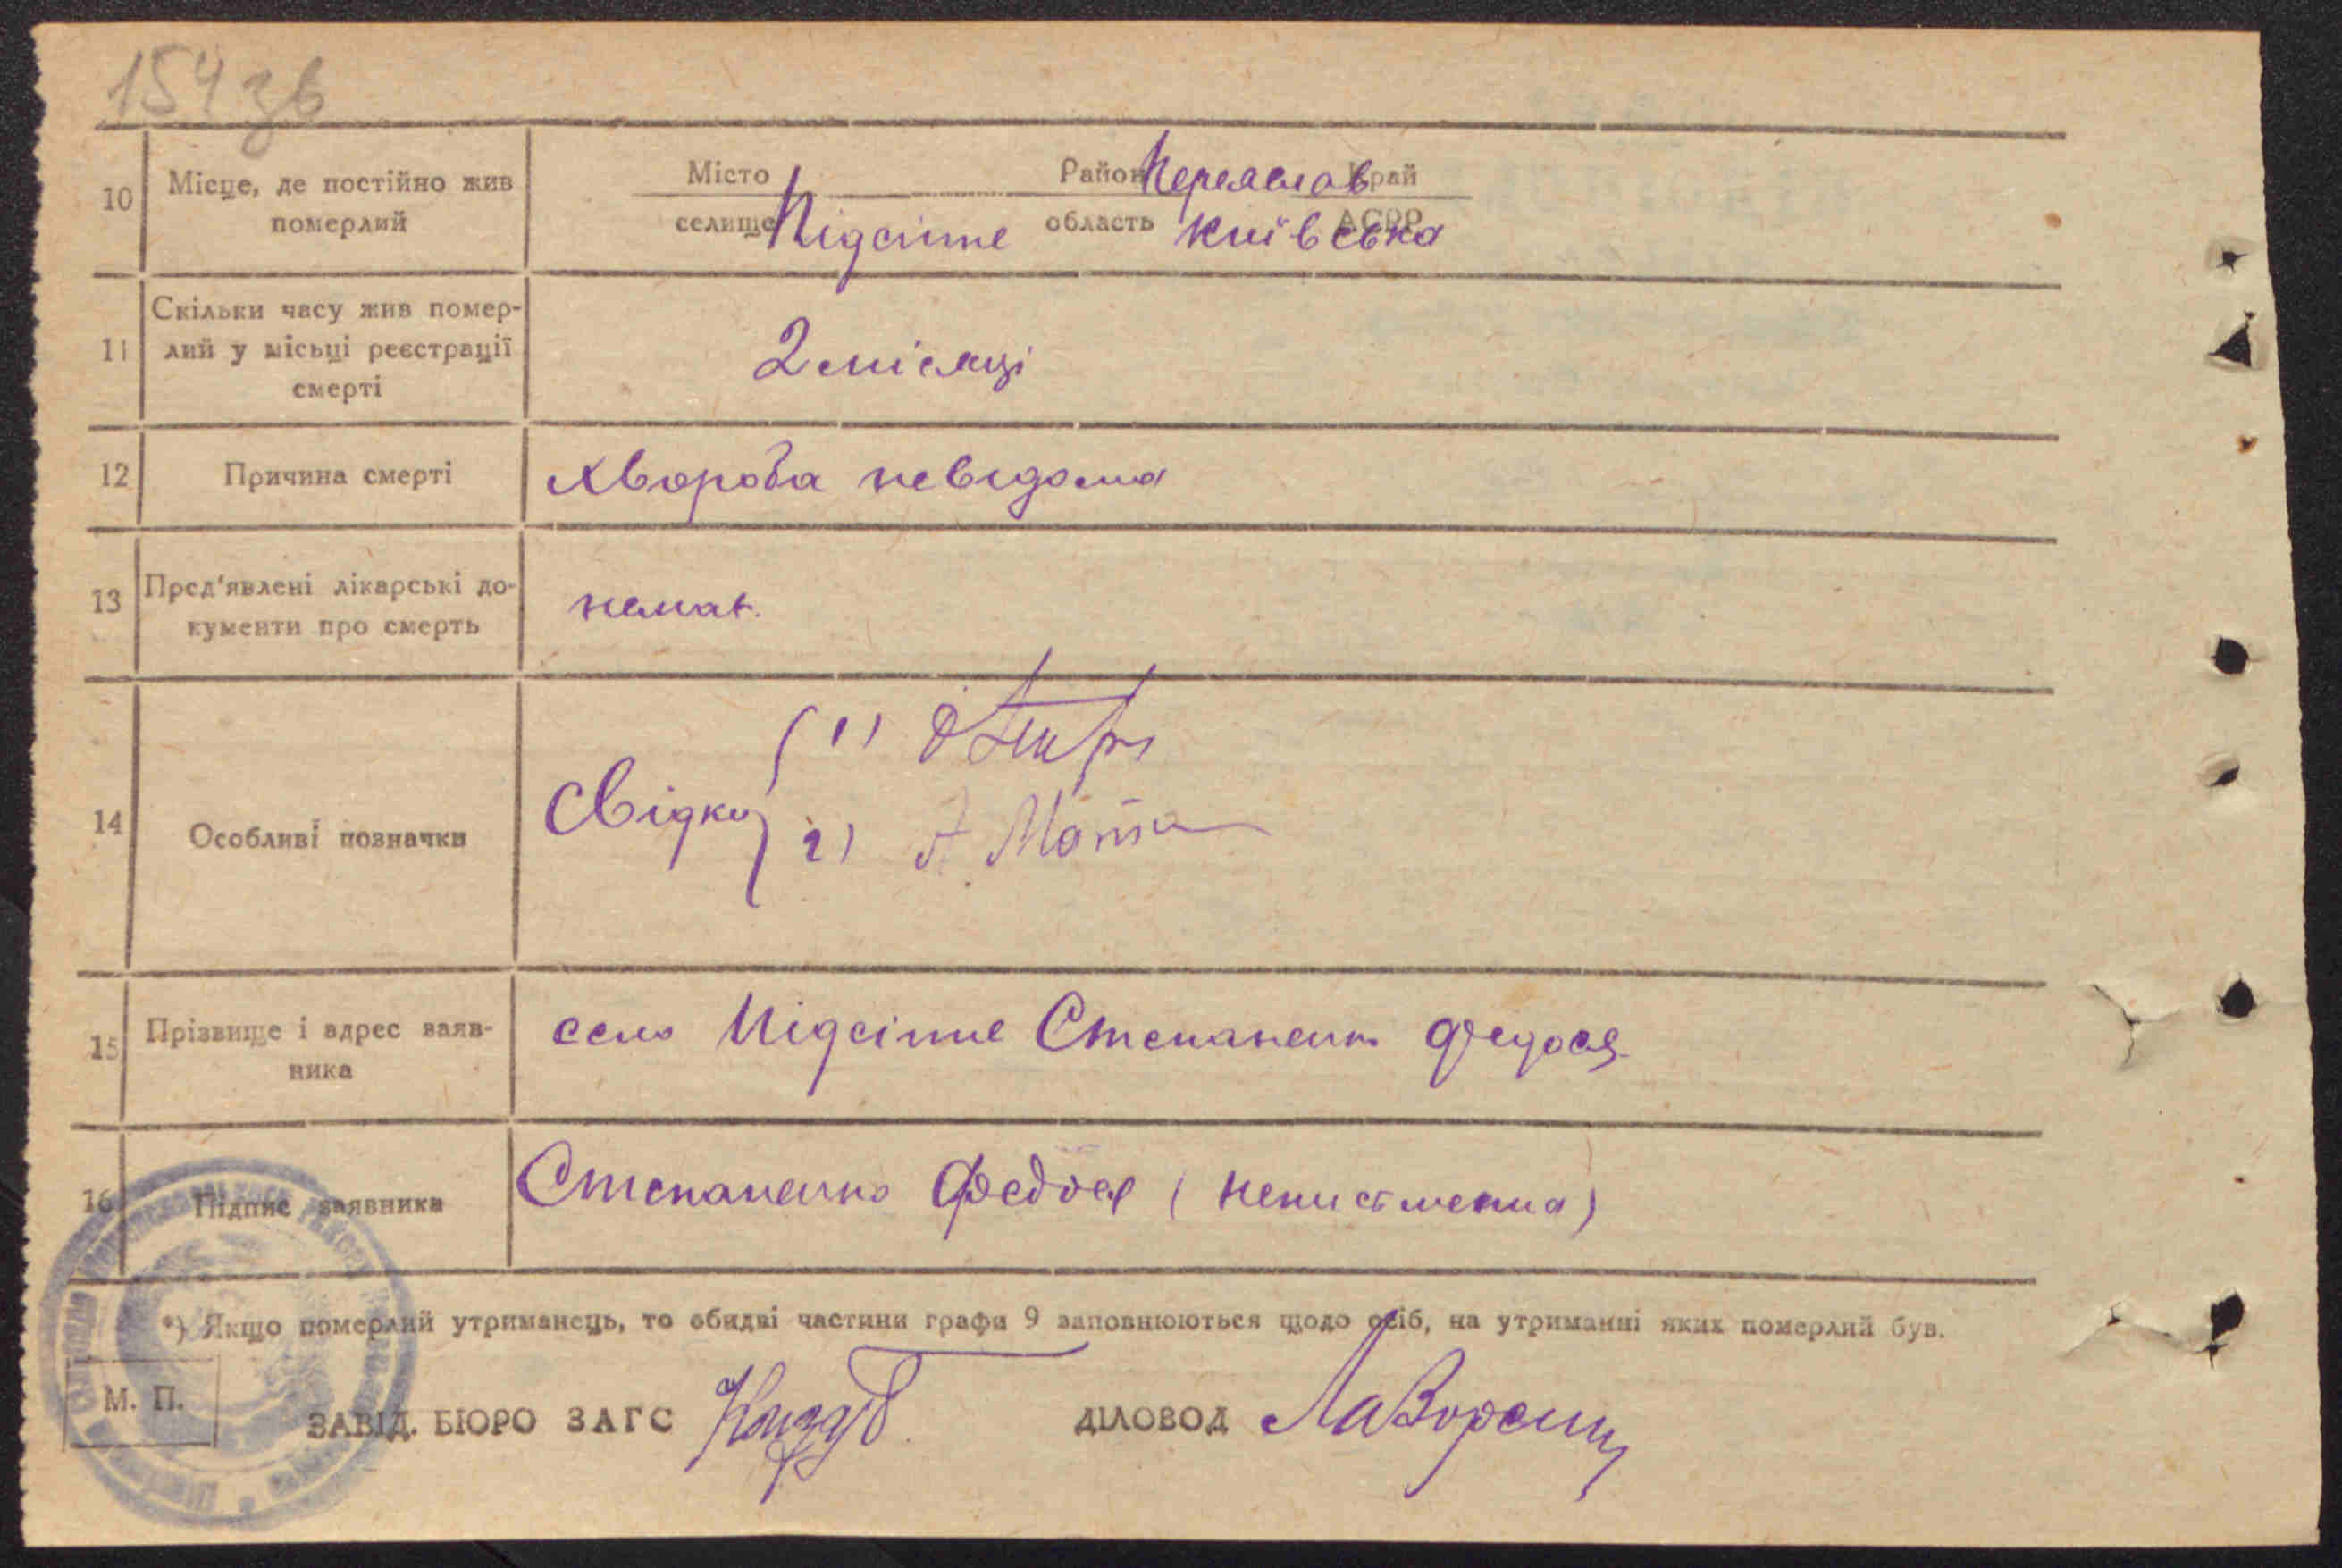 154 зв
10 Місце, де постійно жив померлий
Місто Район Переяслав Край
селище Підсінне область Київська АСРР
11 Скільки часу жив помер-
лий у місьці реєстрації
смерті
2 місяці
12 Причина смерті Хвороба невідома
13 Пред'явлені лікарські до-
кументи про смерть
немає.
14 Особливі позначки
Свідки
1)
2)
15 Прізвище і адрес заяв-
ника
село Підсінне Степаненко Федося
16 Підпис заявника Степаненко Федося (неписьменна)
*) Якщо померлий утриманець, то обидві частини графи 9 заповнюються щодо осіб, на утриманні яких померлий був.
М. П.
ЗАВІД. БЮРО ЗАГС
ДІЛОВОД